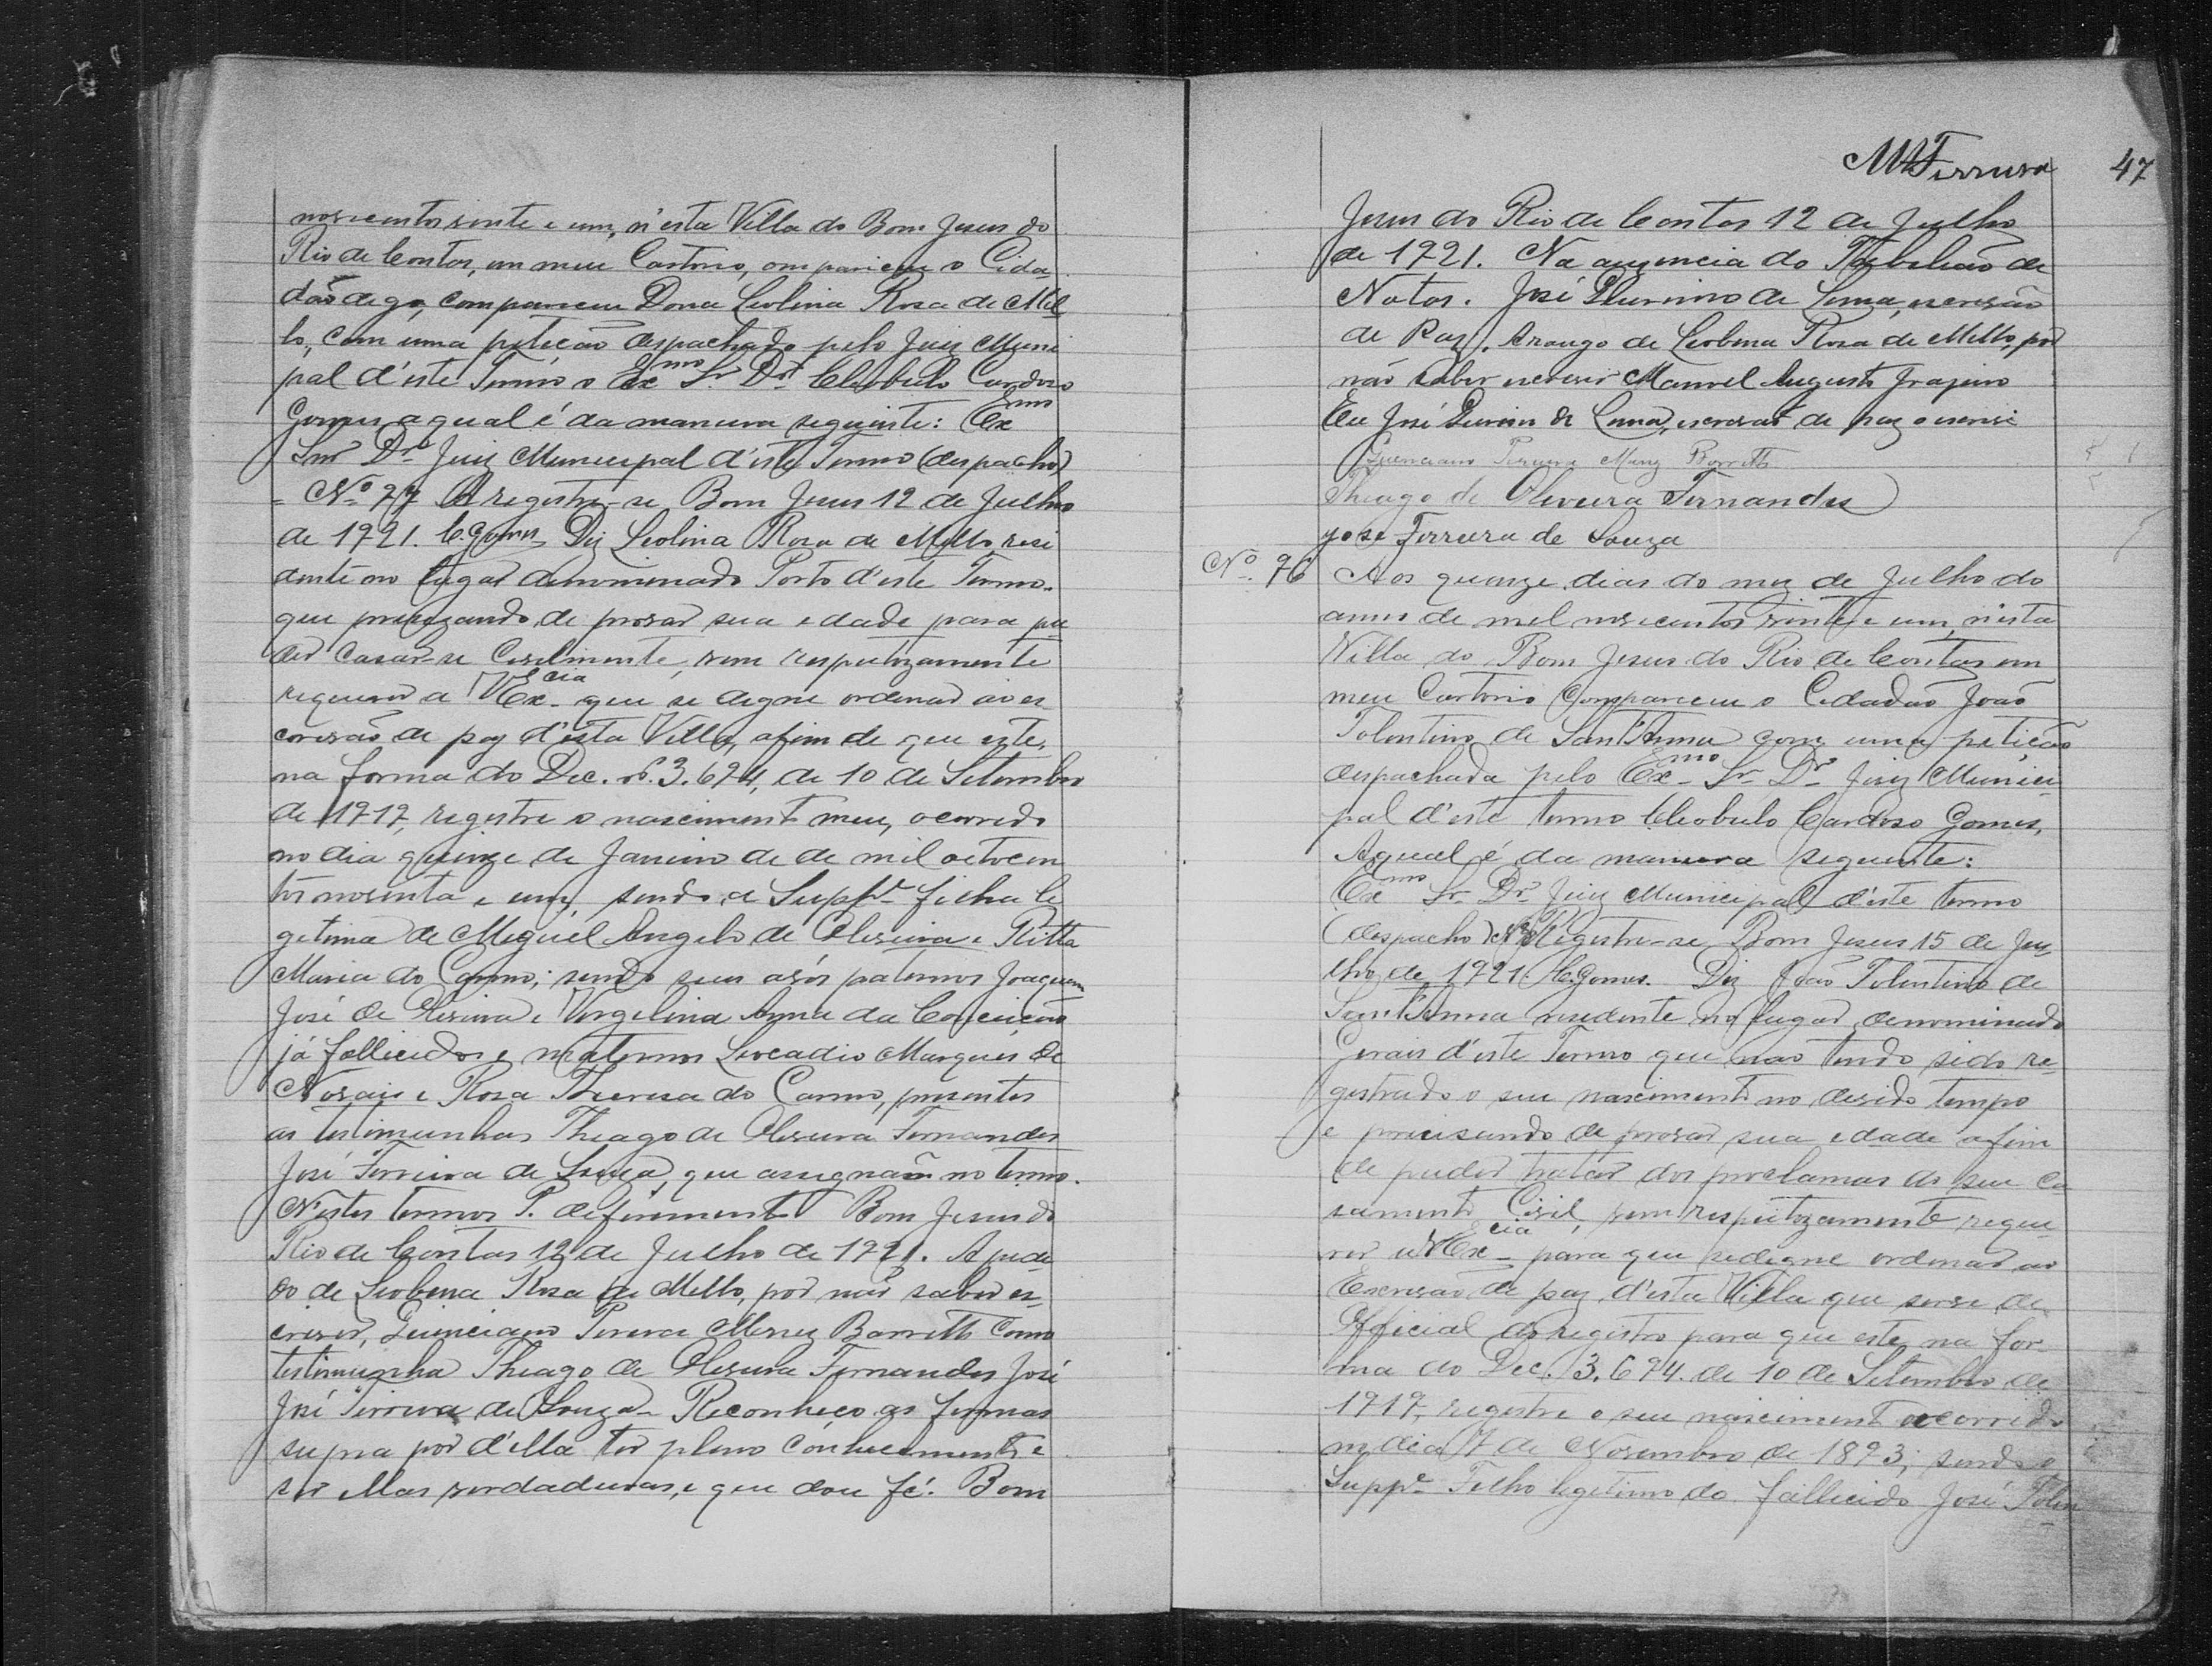 novecentos vinte e um, n'esta Villa do Bom Jesus do
Rio de Contas, em meu Cartorio, compareceu o Cida
dão digo, compareceu Dona Leolina Rosa de Mel
lo, com uma petição despachado pelo Juiz Muni
pal d'este Termo o Exmo Sr. Dr. Cleobulo Cardoso
Gomes a qual é da maneira seguinte: Exmo
Snr Dr. Juiz Municipal d'este Termo (despacho)
Registre-se Bom Jesus 12 de Julho
de 1921. C. Gomes Diz Leolina Rosa de Mello, resi
dente no lugar denominado Porto d'este Termo.
que precizando de provar sua edade para pu
der casar-se Civilmente, vem respeitozamente
requerer a V Excia que se digne ordenar ao es
crivão de paz d'esta Villa, afim de que este,
na forma do Dec. nº 3.694, de 10 de Setembro
de 1919, registre o nasciment meu, ocorrido
no dia quinze de Janeiro de de mil oitocen
tos noventa e um, sendo a Suppe filha le
getima de Miguel Angelo de Oliveira e Ritta
Maria do Carmo; sendo seus avós paternos Joaquim
José de Oliveira e Vergelina Anna da Conceição
já fallecidos e maternos Leocadio Marques de
Novais e Rosa Thereza do Carmo, presentes
as testimunhas Thiago de Oliveira Fernandes
José Ferreira de Souza, que assegnam no termo.
N'estes termos P. deferimento Bom Jesus do
Rio de Contas 12 de Julho de 1921. A pede
do de Leolina Rosa de Mello, por não saber es
crever, Guinciano Pereira Barretto Como
testimunha Thiago de Oliveira Fernandes José
José Ferreira de Souza - Reconheço as firmas
supra por d'ella ter pleno conhecimento e
ser ellas verdadeiras, e que dou fé. Bom
MAFerreira 47
Jesus do Rio de Contas 12 de Julho
de 1921. Na auzencia do Tabelião de
Notas. José de Lima, escrivão
de Paz. Arougo de Leolina Rosa de Mello, por
não saber escrever Manoel Augusto
Eu José de Lima, escrivão de paz o escrevi
Guinciano Pereira Barretto
Thiago de Oliveira Fernandes
José Ferreira de Souza
Nº. 96 Aos quinze dias do mez de Julho do
anno de mel novecentos vinte e um, n'esta
Villa do Bom Jesus do Rio de Contas em
meu Cartorio Compareceu o Cidadão João
Tolentino de Sant'Anna com uma petição
despachada pelo Exmo Sr. Dr. Juiz Munici
pal d'este termo Cleobulo Cardoso Gomes,
Aqual é da maneira seguinte:
Exmo Sr. Dr. Juiz Municipal d'este termo
(despacho) Registre-se Bom Jesus 15 de Ju
lho de 1921. C. Gomes. Diz João Tolentino de
Sant'Anna residente no lugar denominado
Gerais d'este Termo que não tendo sido re-
gestrado o seu nascimento no devido tempo
e precisando de provar sua edade afim
de puder tratar dos proclamas do seu Ca
samento Civil, vem respeitozamente reque
rer a V Excia para que sedigne ordenar ao
Escrivão de paz d'esta Villa que serve de
Official do registro para que este na for
ma do Dec. 3.694. de 10 de Setembro de
1919, registre o seu nasciment ocorrido
no dia 7 de Novembro de 1893; sendo o
Suppe Filho legitimo do fallecido José Tolen